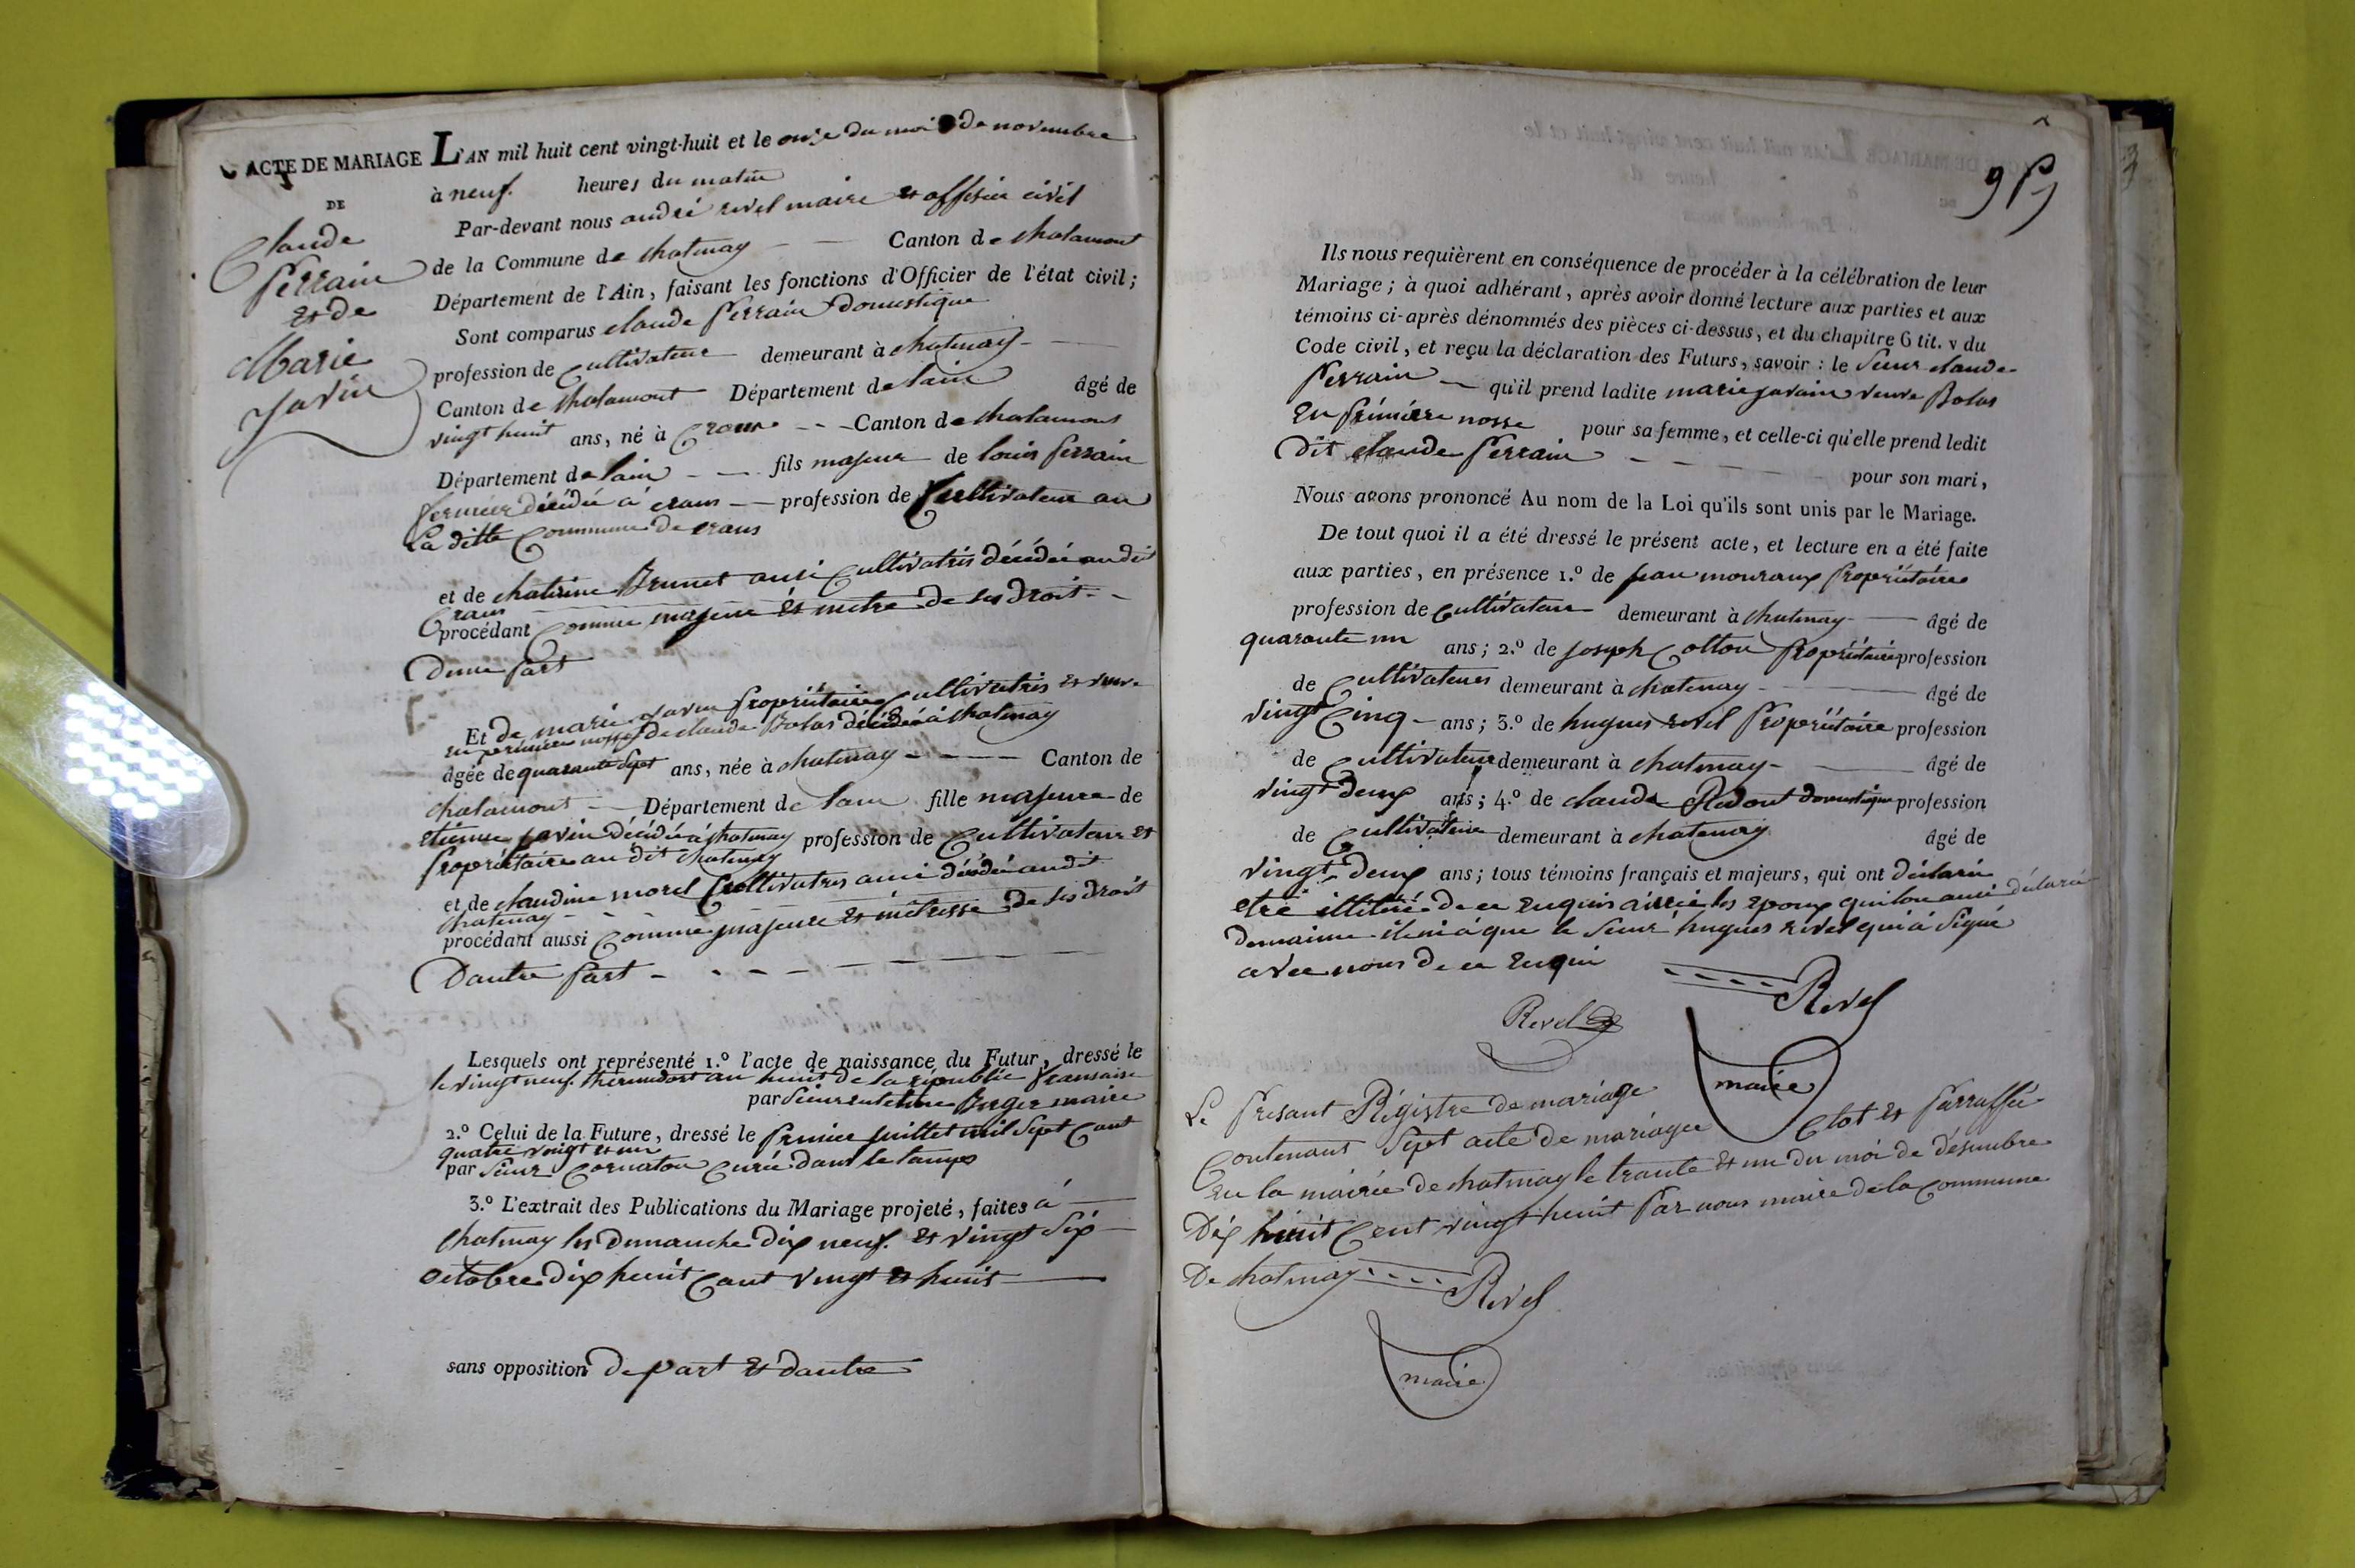 ACTE DE MARIAGE L'AN mil huit cent vingt-huit et le onze du mois de novembre
à neuf heures du matin
DE
Claude
Perrain
et de
Marie
Javin
Par-devant nous andré revel maire et officier civil
de la Commune de chatenay Canton de chalamont
Département de l'Ain, faisant les fonctions d'Officier de l'état civil;
Sont comparus claude Perrain domestique
profession de Cultivateur demeurant à chatenay
Canton de chalamont Département de lain âgé de
vingt huit ans, né à Crans Canton de chalamont
Département de lain fils majeur de louis perrain
fermier décédé à crans profession de Cultivateur au
La ditte Commune de crans
et de chatrine Brunet ausi Cultivatris décédée audit
Crans
procédant Comme majeur et metre de ses droit
Dune part
Et de marie javin Propriétaire Cultivatris et veuve
en permiere nosse de claude Bolas décédé à chatenay
âgée de quarante sept ans, née à chatenay Canton de
chalamont Département de lain fille majeure de
etienne javin décédé à chatenay profession de Cultivateur et
propriétaire au dit chatenay
et de claudine morel Cultivatris ausi décédée audit
chatenay
procédant aussi Comme majeure et métresse de ses droit
Dautre part
Lesquels ont représenté 1.º l'acte de naissance du Futur, dressé le
le vingt neuf thermidort an huit de la république fransaise
par sieur Berger maire
2.º Celui de la Future, dressé le premier juillet mil sept Cant
quatre vingt et un
par sieur Cornaton Curée dans le tamps
3.º L'extrait des Publications du Mariage projeté, faites à
chatenay les dimanche dix neuf et vingt six
octobre dix huit Cant vingt et huit
sans opposition de part et dautre
Ils nous requièrent en conséquence de procéder à la célébration de leur
Mariage; à quoi adhérant, après avoir donné lecture aux parties et aux
témoins ci-après dénommés des pièces ci-dessus, et du chapitre 6 tit. v du
Code civil, et reçu la déclaration des Futurs, savoir : le sieur claude
Perrain qu'il prend ladite marie javain veuve Bolas
en premiere nosse pour sa femme, et celle-ci qu'elle prend ledit
dit claude Perrain pour son mari,
Nous avons prononcé Au nom de la Loi qu'ils sont unis par le Mariage.
De tout quoi il a été dressé le présent acte, et lecture en a été faite
aux parties, en présence 1.º de jean mouraux propriétaire
profession de Cultivateur demeurant à chatenay âgé de
quarante un ans; 2.º de joseph Cotton propriétaire profession
de Cultivateur demeurant à chatenay âgé de
vingt Cinq ans; 3.º de hugues revel Propriétaire profession
de Cultivateur demeurant à chatenay âgé de
vingt deux ans; 4.º de claude Redout domestique profession
de Cultivateur demeurant à chatenay âgé de
vingt deux ans; tous témoins français et majeurs, qui ont déclaré
etre illitéré de ce enquis les epoux qui lon ausi déclaré
demaime il ni à que le sieur hugues revel qui à signé
avec nous de ce enqui
Revel
Revel
maire
Le Presant Régistre de mariage
Contenant sept acte de mariage Clot et parraffée
en la mairie de chatenay le trante et un du moi de désembre
Dix huit Cent vingt huit Par nous maire de la Commune
De chatenay
Revel
maire